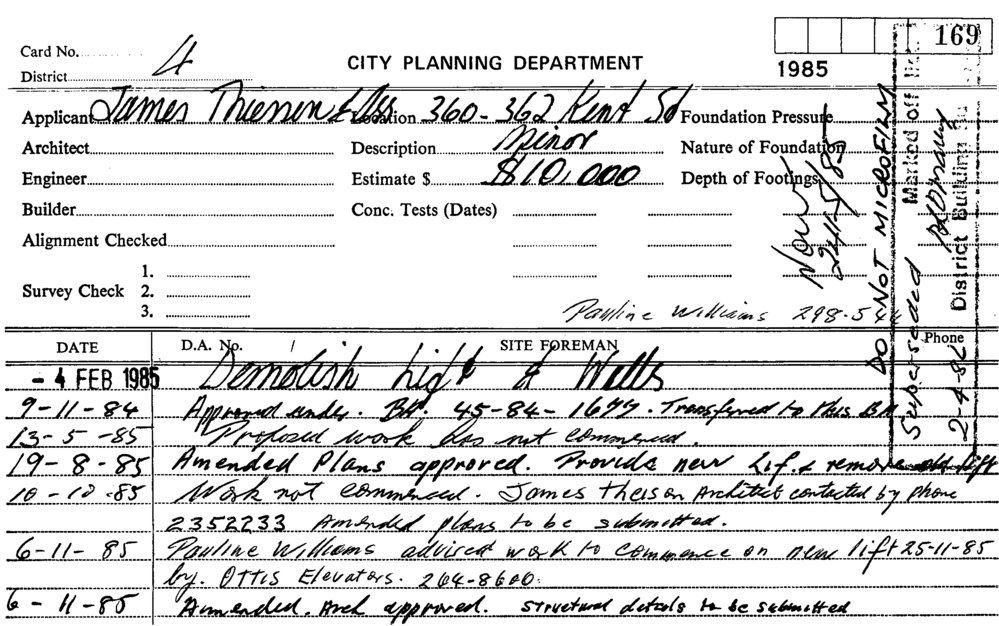 169
Card No.
4
District
CITY PLANNING DEPARTMENT
1985
Applicant James Thiesson & Ass Location 360-362 Kent St Foundation Pressure
Architect Description Minor Nature of Foundation
Engineer Estimate $ $10,000 Depth of Footings
Builder Conc. Tests (Dates)
Alignment Checked
Survey Check 1.
2.
3.
24/5/85
DO NOT MICROFILM
Superseded Marked off
2-4-86 District Building
Pauline Williams 298-5
DATE D.A. No. / SITE FOREMAN Phone
- 4 FEB 1985 Demolish Lift & Walls
9-11-84 Approved under. BA. 45-84-1677. Transferred to this BA
13-5-85 Proposed work has not commenced.
19-8-85 Amended Plans approved. Provide new Lift & remove old lift
10-10-85 Work not commenced. James Theison Architect contacted by phone
2352233 Amended plans to be submitted.
6-11-85 Pauline Williams advised work to commence on new lift 25-11-85
by. Ottis Elevators. 264-8600.
6-11-85 Amended. Arch approved. structural details to be submitted